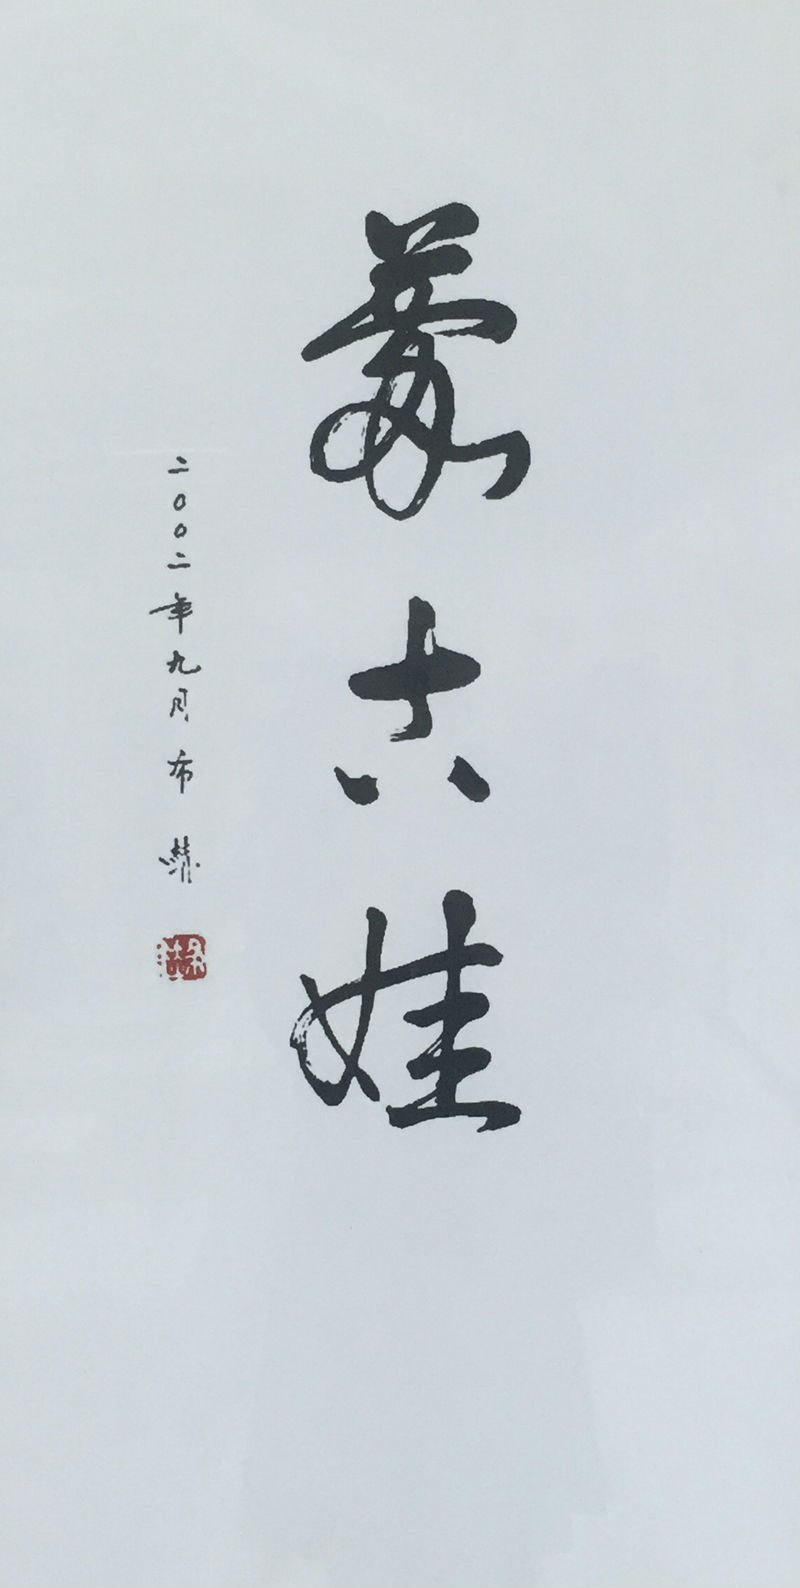 蒙古娃
二〇〇二年九月布赫